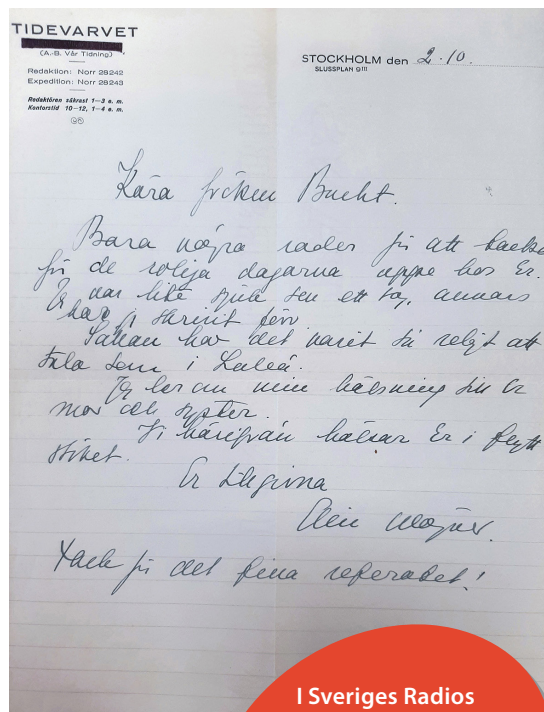 TIDEVARVET
(A.-B. Vår Tidning)
Redaktion: Norr 28242
Expedition: Norr 28243
Redaktören säkrast 1—3 e. m.
Kontorstid 10—12, 1—4 e. m.
STOCKHOLM den 2.10.
SLUSSPLAN 9 III
Kära fröken Bucht.
Bara några rader för att tacka
för de roliga dagarna uppe hos Er.
Jag var lite sjuk sen ett tag, annars
har j skrivit förr.
Sällan har det varit så roligt att
tala som i Luleå.
Jag ber om min hälsning till Er
mor och syster.
Vi härifrån hälsar Er i
Er tillgivna
Elin Wägner.
Tack för det fina referatet!
I Sveriges Radios